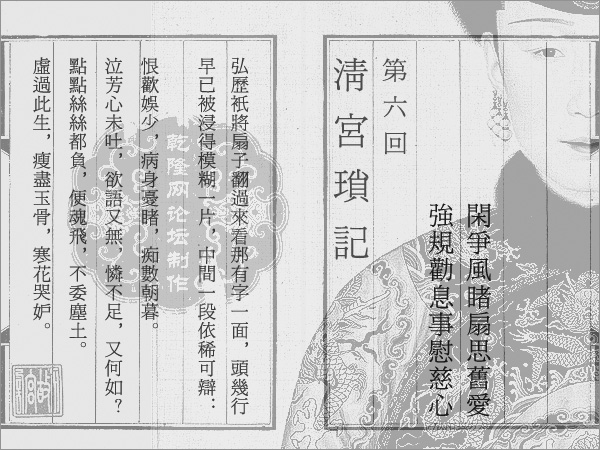 第六回
清宮瑣記
閑爭風睹扇思舊愛
強規勸息事慰慈心
弘歷衹將扇子翻過來看那有字一面，頭幾行
早已被浸得模糊一片，中間一段依稀可辯：
恨歡娛少，病身憂睹，痴數朝暮。
泣芳心未吐，欲語又無，憐不足，又何如？
點點絲絲都負，便魂飛，不委塵土。
虛過此生，瘦盡玉骨，寒花哭妒。
乾隆网论坛制作